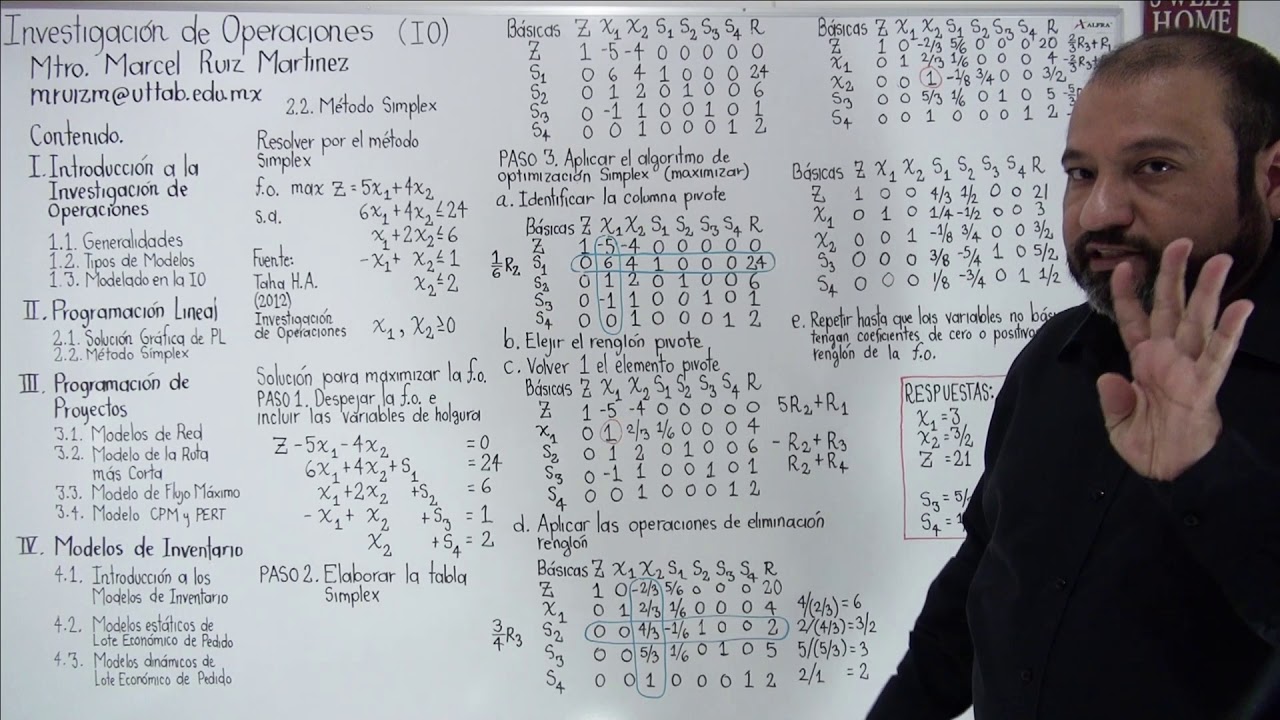 Investigación de Operaciones (IO)
Mtro. Marcel Ruiz Martínez
mruizm@uttab.edu.mx
2.2. Método Simplex
Contenido.
I. Introducción a la
Investigación de
Operaciones
1.1. Generalidades
1.2. Tipos de Modelos
1.3. Modelado en la IO
II. Programación Lineal
2.1. Solución Gráfica de PL
2.2. Método Simplex
III. Programación de
Proyectos
3.1. Modelos de Red
3.2. Modelo de la Ruta
más Corta
3.3. Modelo de Flujo Máximo
3.4. Modelo CPM y PERT
IV. Modelos de Inventario
4.1. Introducción a los
Modelos de Inventario
4.2. Modelos estáticos de
Lote Económico de Pedido
4.3. Modelos dinámicos de
Lote Económico de Pedido
Resolver por el método
Simplex
f.o. max Z = 5x₁+4x₂
s.a. 6x₁+4x₂≤24
x₁+2x₂≤6
-x₁+ x₂≤1
x₂≤2
x₁, x₂≥0
Fuente:
Taha H.A.
(2012)
Investigación
de Operaciones
Solución para maximizar la f.o.
PASO 1. Despejar la f.o. e
incluir las variables de holgura
Z -5x₁-4x₂ =0
6x₁+4x₂+S₁ =24
x₁+2x₂ +S₂ =6
-x₁+ x₂ +S₃ =1
x₂ +S₄=2
PASO 2. Elaborar la tabla
Simplex
Básicas Z X₁ X₂ S₁ S₂ S₃ S₄ R
Z 1 -5 -4 0 0 0 0 0
S₁ 0 6 4 1 0 0 0 24
S₂ 0 1 2 0 1 0 0 6
S₃ 0 -1 1 0 0 1 0 1
S₄ 0 0 1 0 0 0 1 2
PASO 3. Aplicar el algoritmo de
optimización Simplex (maximizar)
a. Identificar la columna pivote
Básicas Z X₁ X₂ S₁ S₂ S₃ S₄ R
Z 1 -5 -4 0 0 0 0 0
1/6 R₂ S₁ 0 6 4 1 0 0 0 24
S₂ 0 1 2 0 1 0 0 6
S₃ 0 -1 1 0 0 1 0 1
S₄ 0 0 1 0 0 0 1 2
b. Elejir el renglón pivote
c. Volver 1 el elemento pivote
Básicas Z X₁ X₂ S₁ S₂ S₃ S₄ R
Z 1 -5 -4 0 0 0 0 0 5R₂+R₁
X₁ 0 1 2/3 1/6 0 0 0 4
S₂ 0 1 2 0 1 0 0 6 -R₂+R₃
S₃ 0 -1 1 0 0 1 0 1 R₂+R₄
S₄ 0 0 1 0 0 0 1 2
d. Aplicar las operaciones de eliminación
renglón
Básicas Z X₁ X₂ S₁ S₂ S₃ S₄ R
Z 1 0 -2/3 5/6 0 0 0 20
X₁ 0 1 2/3 1/6 0 0 0 4 4/(2/3)=6
3/4 R₃ S₂ 0 0 4/3 -1/6 1 0 0 2 2/(4/3)=3/2
S₃ 0 0 5/3 1/6 0 1 0 5 5/(5/3)=3
S₄ 0 0 1 0 0 0 1 2 2/1 = 2
Básicas Z X₁ X₂ S₁ S₂ S₃ S₄ R
Z 1 0 -2/3 5/6 0 0 0 20 2/3R₃+R₁
X₁ 0 1 2/3 1/6 0 0 0 4 -2/3R₃+
X₂ 0 0 1 -1/8 3/4 0 0 3/2
S₃ 0 0 5/3 1/6 0 1 0 5
S₄ 0 0 1 0 0 0 1 2
Básicas Z X₁ X₂ S₁ S₂ S₃ S₄ R
Z 1 0 0 4/3 1/2 0 0 21
X₁ 0 1 0 1/4 -1/2 0 0 3
X₂ 0 0 1 -1/8 3/4 0 0 3/2
S₃ 0 0 0 3/8 -5/4 1 0 5/2
S₄ 0 0 0 1/8 -3/4 0 1 1/2
e. Repetir hasta que las variables no
tengan coeficientes de cero o positivo
renglón de la f.o.
RESPUESTAS:
X₁=3
X₂=3/2
Z =21
S₃=5/
S₄=
ALFRA
HOME